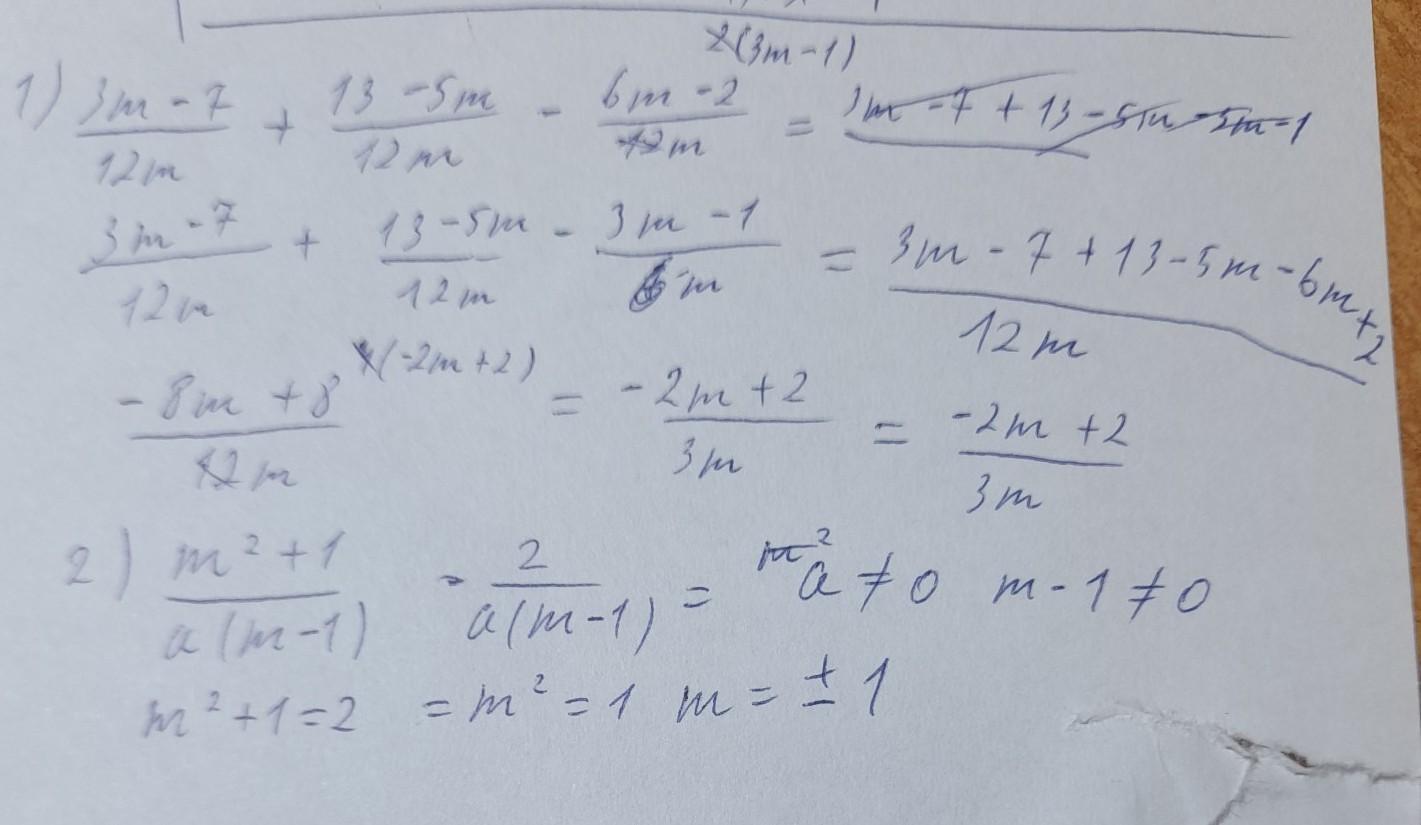 2(3m-1)
1) 3m-7/12m + 13-5m/12m - 6m-2/12m = 3m-7+13-5m-5m-1
3m-7/12m + 13-5m/12m - 3m-1/6m = 3m-7+13-5m-6m+2/12m
-8m+8/12m 4(-2m+2) = -2m+2/3m = -2m+2/3m
2) m²+1/a(m-1) - 2/a(m-1) = m² a≠0 m-1≠0
m²+1=2 = m²=1 m=±1